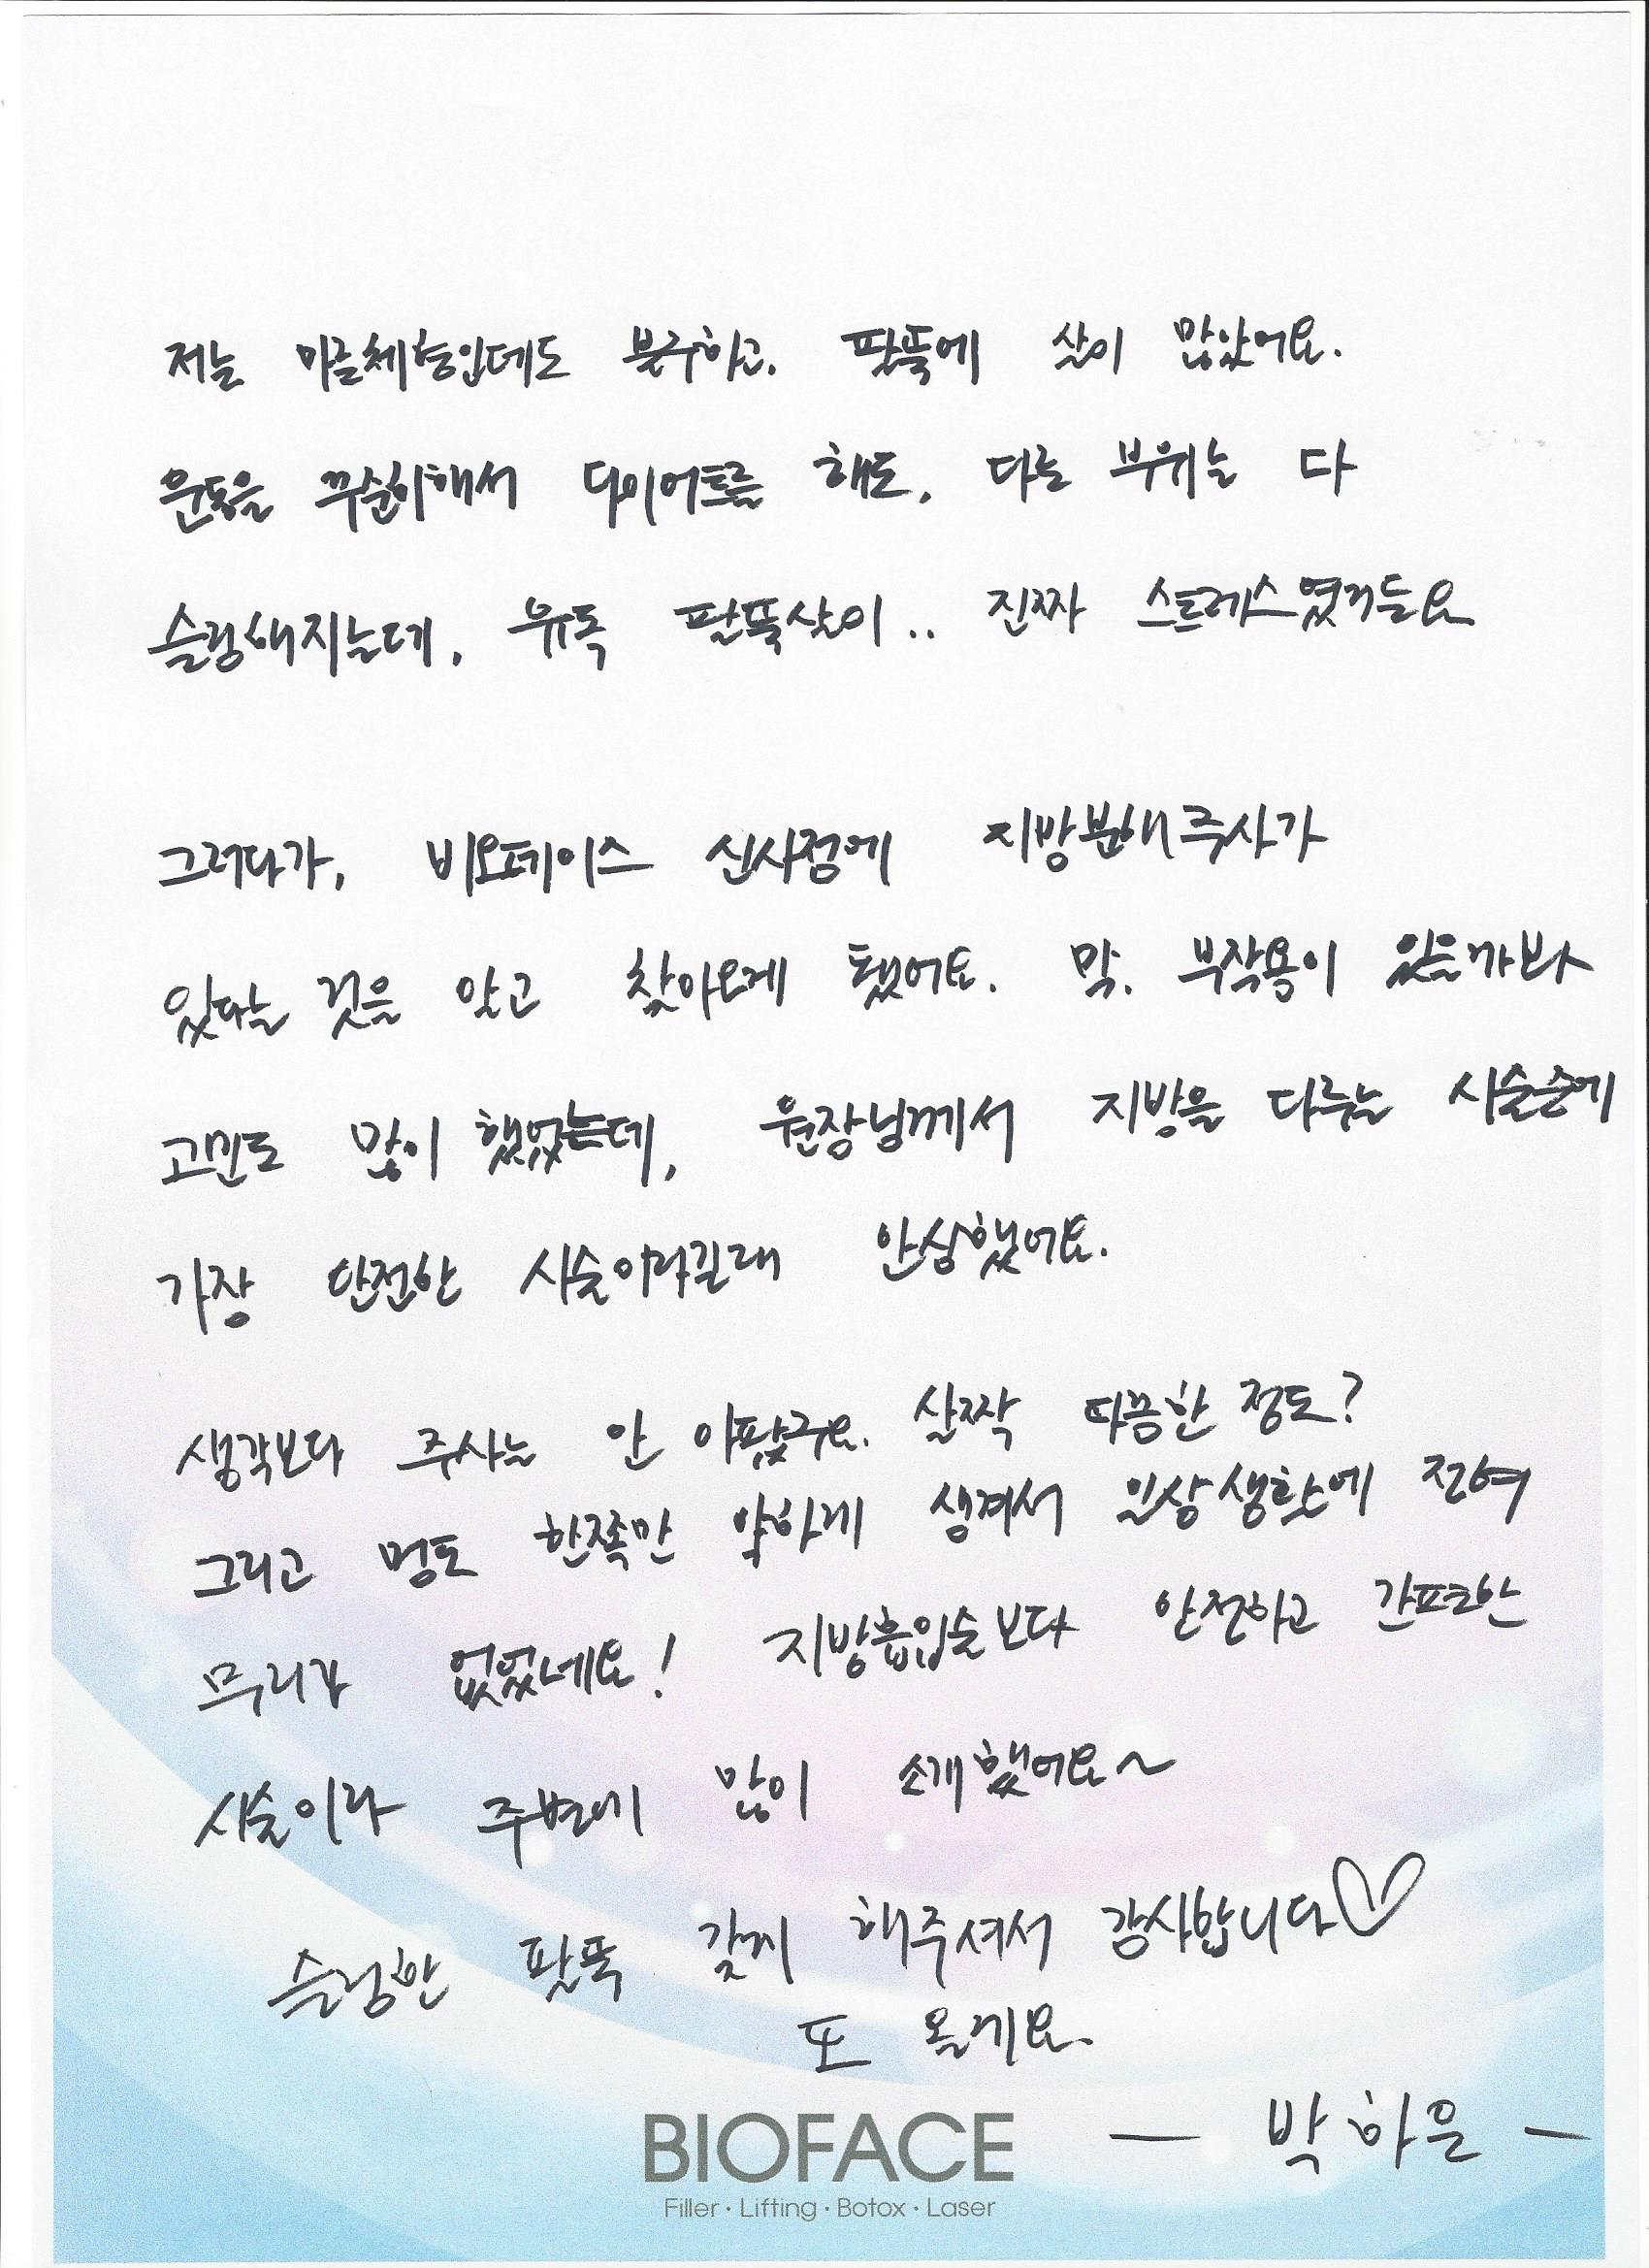 저는 마른체형인데도 불구하고. 팔뚝에 살이 많았어요.
운동을 꾸순히해서 다이어트를 해도, 다른 부위는 다
슬림해지는데, 유독 팔뚝살이.. 진짜 스트레스였거든요
그러다가, 비오페이스 신사점에 지방분해주사가
있다는 것을 알고 찾아오게 됐어요. 막. 부작용이 있을까봐
고민도 많이 했었는데, 원장님께서 지방을 다루는 시술중에
가장 안전한 시술이라길래 안심했어요.
생각보다 주사는 안 아팠구요. 살짝 따끔한 정도?
그리고 멍도 한쪽만 약하게 생겨서 일상생활에 전혀
무리가 없었네요! 지방흡입술보다 안전하고 간편한
시술이라 주변에 많이 소개했어요~
슬림한 팔뚝 갖게 해주셔서 감사합니다♡
또 올게요.
— 박하은 —
BIOFACE
Filler · Lifting · Botox · Laser